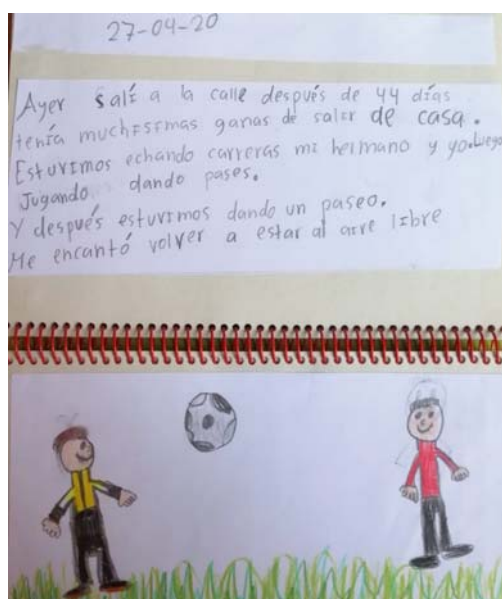 27-04-20
Ayer salí a la calle después de 44 días
tenía muchísimas ganas de salir de casa.
Estuvimos echando carreras mi hermano y yo.Luego
Jugando dando pases.
Y después estuvimos dando un paseo.
Me encantó volver a estar al aire libre